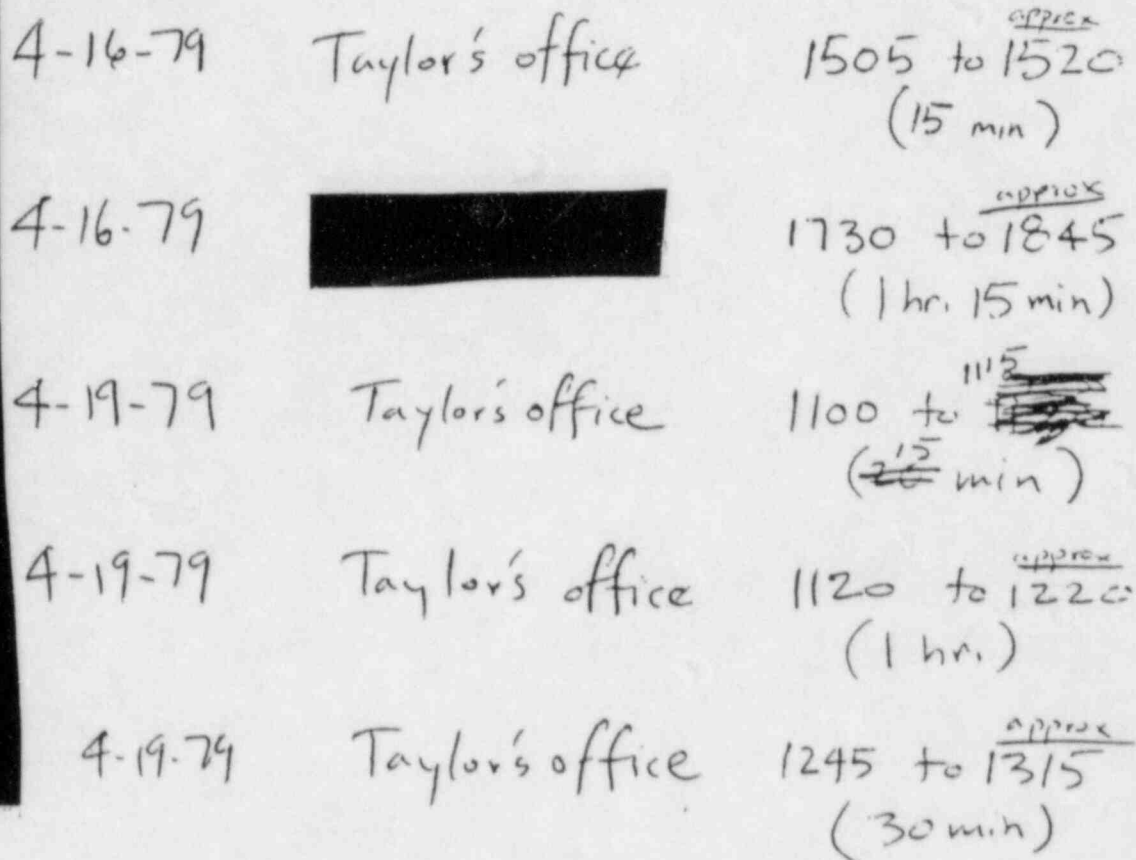 4-16-79 Taylor's office 1505 to approx 1520
(15 min)
4-16-79 1730 to approx 1845
(1 hr. 15 min)
4-19-79 Taylor's office 1100 to 1115
(15 min)
4-19-79 Taylor's office 1120 to approx 1220
(1 hr.)
4-19-79 Taylor's office 1245 to approx 1315
(30 min)